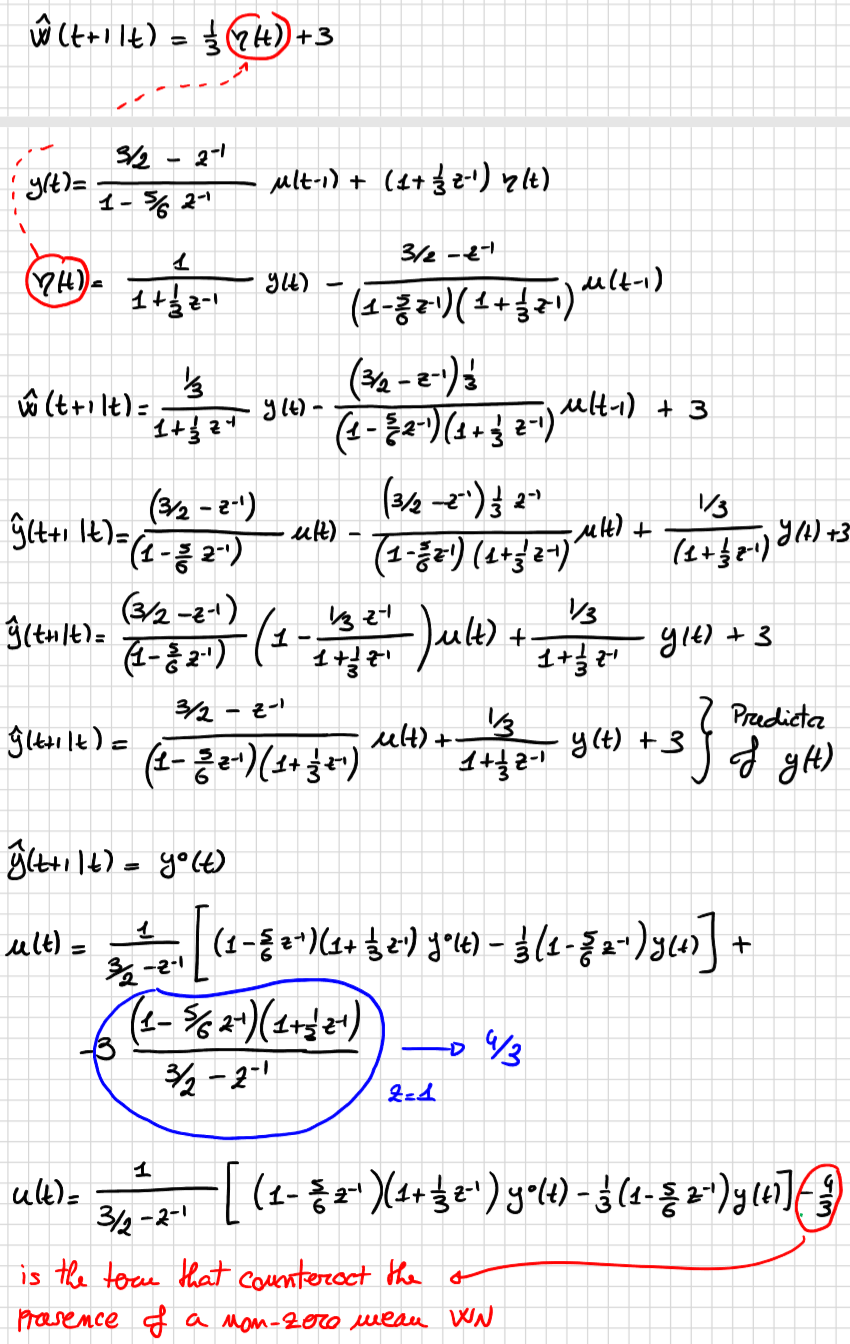 ŵ(t+1|t) = 1/3 η(t) + 3
y(t) = (3/2 - z⁻¹)/(1 - 5/6 z⁻¹) u(t-1) + (1 + 1/3 z⁻¹) η(t)
η(t) = 1/(1 + 1/3 z⁻¹) y(t) - (3/2 - z⁻¹)/((1 - 5/6 z⁻¹)(1 + 1/3 z⁻¹)) u(t-1)
ŵ(t+1|t) = (1/3)/(1 + 1/3 z⁻¹) y(t) - ((3/2 - z⁻¹) 1/3)/((1 - 5/6 z⁻¹)(1 + 1/3 z⁻¹)) u(t-1) + 3
ŷ(t+1|t) = (3/2 - z⁻¹)/(1 - 5/6 z⁻¹) u(t) - ((3/2 - z⁻¹) 1/3 z⁻¹)/((1 - 5/6 z⁻¹)(1 + 1/3 z⁻¹)) u(t) + (1/3)/(1 + 1/3 z⁻¹) y(t) + 3
ŷ(t+1|t) = (3/2 - z⁻¹)/(1 - 5/6 z⁻¹) (1 - (1/3 z⁻¹)/(1 + 1/3 z⁻¹)) u(t) + (1/3)/(1 + 1/3 z⁻¹) y(t) + 3
ŷ(t+1|t) = (3/2 - z⁻¹)/((1 - 5/6 z⁻¹)(1 + 1/3 z⁻¹)) u(t) + (1/3)/(1 + 1/3 z⁻¹) y(t) + 3 } Predictor of y(t)
ŷ(t+1|t) = y°(t)
u(t) = 1/(3/2 - z⁻¹) [(1 - 5/6 z⁻¹)(1 + 1/3 z⁻¹) y°(t) - 1/3 (1 - 5/6 z⁻¹) y(t)] +
-3 ((1 - 5/6 z⁻¹)(1 + 1/3 z⁻¹))/(3/2 - z⁻¹) → 4/3
z=1
u(t) = 1/(3/2 - z⁻¹) [(1 - 5/6 z⁻¹)(1 + 1/3 z⁻¹) y°(t) - 1/3 (1 - 5/6 z⁻¹) y(t)] - 4/3
is the term that counteract the
presence of a non-zero mean WN